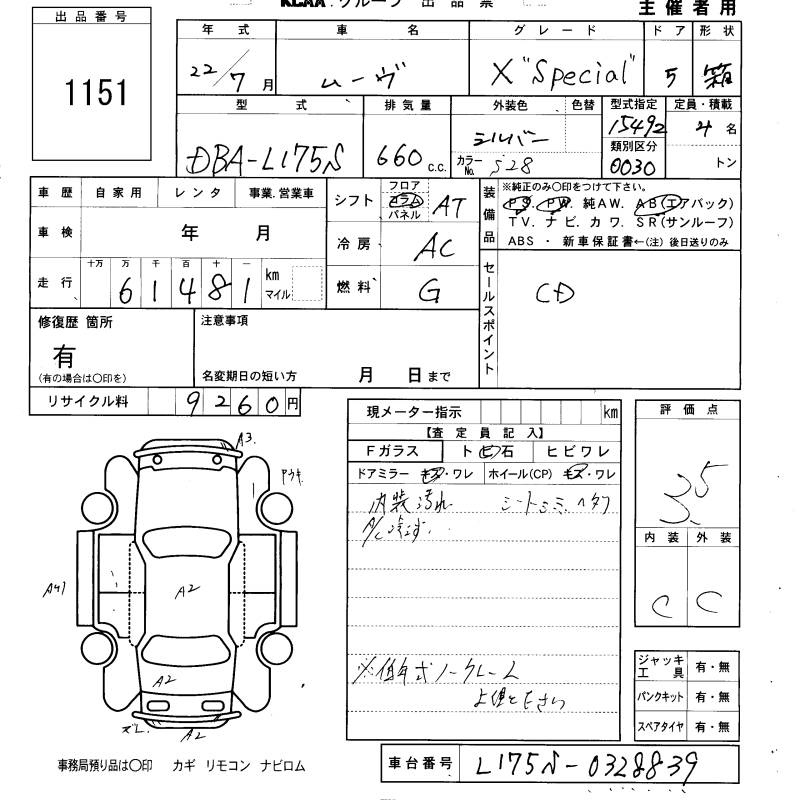 KCAA グループ 出品票
主催者用
出品番号
1151
年式 車名 グレード ドア 形状
22/7月 ムーヴ X "Special" 5 箱
型式 排気量 外装色 色替 型式指定 定員・積載
DBA-L175S 660 c.c. シルバー 15492 4名
カラーNo. S28 類別区分 0030 トン
車歴 自家用 レンタ 事業.営業車
車検 年 月
走行 十万 万 千 百 十 一 km マイル
61481
シフト フロア コラム パネル AT
冷房 AC
燃料 G
装備品
※純正のみ〇印をつけて下さい。
PS. PW. 純AW. AB(エアバック)
TV. ナビ. カワ. SR(サンルーフ)
ABS ・ 新車保証書←(注) 後日送りのみ
セールスポイント
CD
修復歴 箇所
有
(有の場合は〇印を)
注意事項
名変期日の短い方 月 日まで
リサイクル料 9260円
現メーター指示 km
【査定員記入】
Fガラス トビ石 ヒビワレ
ドアミラー キズ・ワレ ホイール(CP) キズ・ワレ
内装汚れ シートシミ.ヘタリ
A/C冷えず.
※低年式ノークレーム
評価点
3.5
内装 外装
C C
ジャッキ工具 有・無
パンクキット 有・無
スペアタイヤ 有・無
A3.
A2
A2
A2
事務局預り品は〇印 カギ リモコン ナビロム
車台番号 L175S-0328839